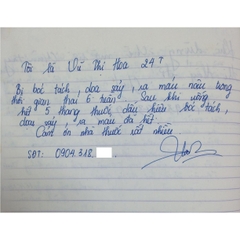 Tôi là Vũ Thị Hoa 24T
Bị bóc tách, dọa sảy, ra máu nâu trong
thời gian thai 6 tuần. Sau khi uống
hết 5 thang thuốc, dấu hiệu bóc tách,
dọa sảy, ra máu đã hết.
Cảm ơn nhà thuốc rất nhiều
SĐT: 0904.318.